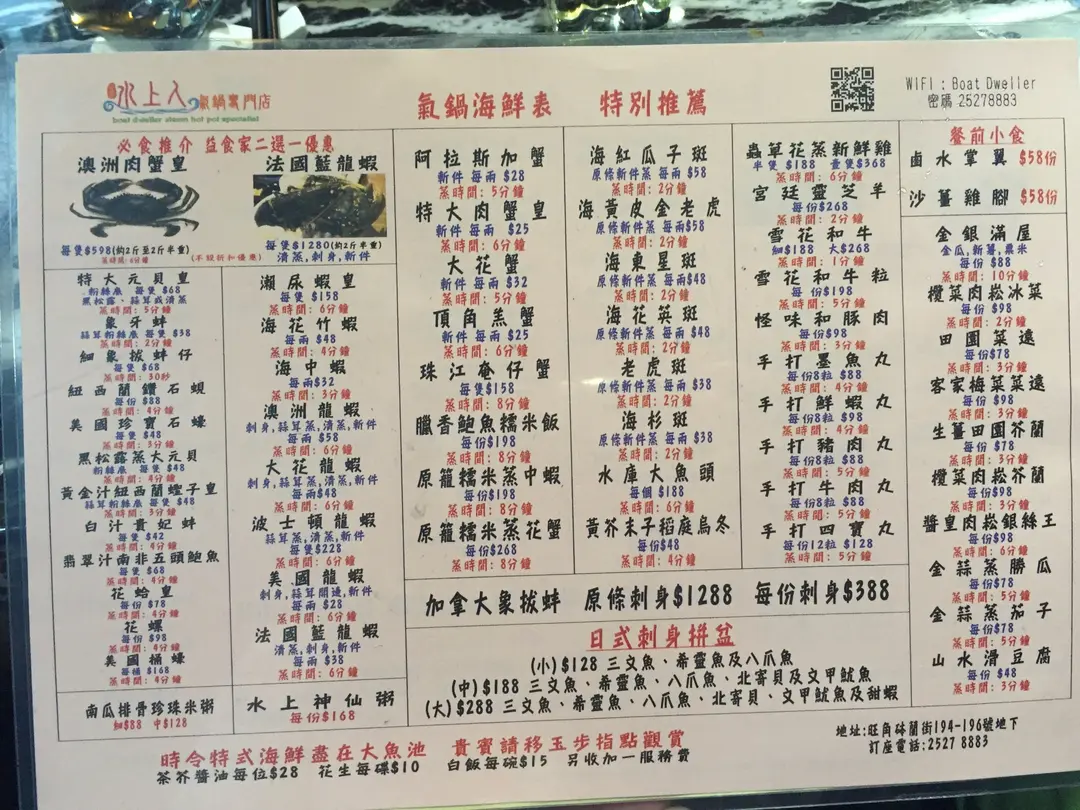 水上人氣鍋專門店
boat dweller steam hot pot specialist
氣鍋海鮮表 特別推薦
WIFI : Boat Dweller
密碼 25278883
必食推介 益食家二選一優惠
澳洲肉蟹皇
每隻$598(約2斤至2斤半重)
蒸時間:6分鐘
法國藍龍蝦
每隻$1280(約2斤半重)
清蒸,刺身,新件
(不設折扣優惠)
特大元貝皇
粉絲底 每隻 $68
黑松露、蒜茸或清蒸
蒸時間: 5分鐘
象牙蚌
蒜茸粉絲底 每隻 $38
蒸時間: 2分鐘
細象拔蚌仔
每隻 $68
蒸時間: 30秒
紐西蘭鑽石蜆
每份 $88
蒸時間: 4分鐘
美國珍寶石蠔
每隻 $48
蒸時間: 3分鐘
黑松露蒸大元貝
粉絲底 每隻 $48
蒸時間: 4分鐘
黃金汁紐西蘭蟶子皇
蒜茸粉絲底 每隻 $48
蒸時間: 3分鐘
白汁貴妃蚌
每隻 $42
蒸時間: 4分鐘
翡翠汁南非五頭鮑魚
每隻 $68
蒸時間: 4分鐘
花蛤皇
每份 $78
蒸時間: 4分鐘
花螺
每份 $98
蒸時間: 4分鐘
美國桶蠔
每桶 $168
蒸時間: 4分鐘
南瓜排骨珍珠米粥
細$88 中$128
瀨尿蝦皇
每隻 $158
蒸時間: 6分鐘
海花竹蝦
每兩 $48
蒸時間: 4分鐘
海中蝦
每兩$32
蒸時間: 3分鐘
澳洲龍蝦
刺身,蒜茸蒸,清蒸,新件
每兩 $58
蒸時間: 6分鐘
大花龍蝦
刺身,蒜茸蒸,清蒸,新件
每兩$48
蒸時間: 6分鐘
波士頓龍蝦
蒜茸蒸,清蒸,新件
每隻$228
蒸時間: 6分鐘
美國龍蝦
刺身,蒜茸開邊,新件
每兩 $28
蒸時間: 6分鐘
法國藍龍蝦
清蒸,刺身,新件
每兩 $38
蒸時間: 6分鐘
水上神仙粥
每份$168
阿拉斯加蟹
新件 每兩 $28
蒸時間: 5分鐘
特大肉蟹皇
新件 每兩 $25
蒸時間: 6分鐘
大花蟹
新件 每兩 $32
蒸時間: 5分鐘
頂角羔蟹
新件 每兩 $25
蒸時間: 6分鐘
珠江奄仔蟹
每隻$158
蒸時間: 8分鐘
臘香鮑魚糯米飯
每份$198
蒸時間: 8分鐘
原籠糯米蒸中蝦
每份$198
蒸時間: 8分鐘
原籠糯米蒸花蟹
每份$268
蒸時間: 8分鐘
海紅瓜子斑
原條新件蒸 每兩 $58
蒸時間: 2分鐘
海黃皮金老虎
原條新件蒸 每兩$58
蒸時間: 2分鐘
海東星斑
原條新件蒸 每兩$48
蒸時間: 2分鐘
海花英斑
原條新件蒸 每兩 $48
蒸時間: 2分鐘
老虎斑
原條新件蒸 每兩 $38
蒸時間: 2分鐘
海杉斑
原條新件蒸 每兩 $38
蒸時間: 2分鐘
水庫大魚頭
每個 $188
蒸時間: 6分鐘
黃芥末子稻庭烏冬
每份$48
蒸時間: 4分鐘
蟲草花蒸新鮮雞
半隻 $188 壹隻$368
蒸時間: 6分鐘
宮廷靈芝羊
每份$268
蒸時間: 2分鐘
雪花和牛
細$188 大$268
蒸時間: 1分鐘
雪花和牛粒
每份$198
蒸時間: 5分鐘
怪味和豚肉
每份$98
蒸時間: 4分鐘
手打墨魚丸
每份8粒 $88
蒸時間: 5分鐘
手打鮮蝦丸
每份8粒 $98
蒸時間: 4分鐘
手打豬肉丸
每份8粒 $88
蒸時間: 5分鐘
手打牛肉丸
每份8粒 $88
蒸時間: 5分鐘
手打四寶丸
每份12粒 $128
蒸時間: 5分鐘
加拿大象拔蚌 原條刺身$1288 每份刺身$388
日式刺身拼盆
(小)$128 三文魚、希靈魚及八爪魚
(中)$188 三文魚、希靈魚、八爪魚、北寄貝及文甲魷魚
(大)$288 三文魚、希靈魚、八爪魚、北寄貝、文甲魷魚及甜蝦
餐前小食
鹵水掌翼 $58份
沙薑雞腳 $58份
金銀滿屋
金瓜,新薯,粟米
每份 $88
蒸時間: 10分鐘
欖菜肉崧冰菜
每份 $98
蒸時間: 2分鐘
田園菜遠
每份$78
蒸時間: 2分鐘
客家梅菜菜遠
每份$98
蒸時間: 3分鐘
生薑田園芥蘭
每份 $78
蒸時間: 3分鐘
欖菜肉崧芥蘭
每份$98
蒸時間: 3分鐘
醬皇肉崧銀絲王
每份$98
蒸時間: 6分鐘
金蒜蒸勝瓜
每份$78
蒸時間: 5分鐘
金蒜蒸茄子
每份$78
蒸時間: 5分鐘
山水滑豆腐
每份 $48
蒸時間: 3分鐘
時令特式海鮮盡在大魚池 貴賓請移玉步指點觀賞
茶芥醬油每位$28 花生每碟$10 白飯每碗$15 另收加一服務費
地址:旺角砵蘭街194-196號地下
訂座電話:2527 8883